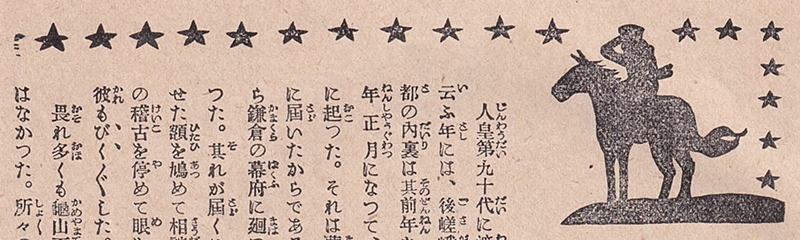 人皇第九十代に
云ふ年には、後嵯峨
都の内裏は其前年
年正月になつて、
に起つた。それは
に屆いたからであ
ら鎌倉の幕府に廻
つた。其れが屆く
せた額を鳩めて相
の稽古を停めて眼
彼もびく〲した。
畏れ多くも龜山
はなかつた。所々